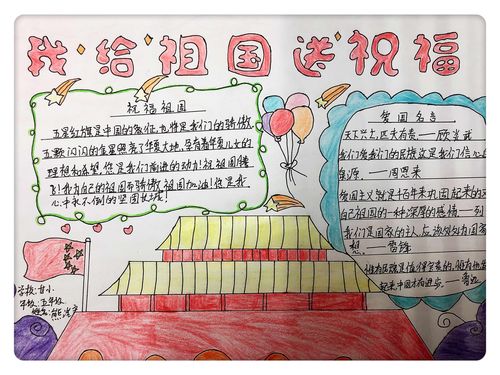 我给祖国送祝福
祝福祖国
五星红旗是中国的象征,也将是我们的骄傲
五颗闪闪的金星照亮了华夏大地,
理想和希望,您是我们前进的动力!祝祖国腾
飞!我为自己的祖国而骄傲,祖国加油!您是我
心中永不倒的坚固长城!
爱国名言
天下兴亡,匹夫有责——顾炎武
我们爱我们的民族,这是我们自信心的
泉源.——周恩来
爱国主义就是千百年来巩固起来的对
自己祖国的一种深厚的感情——列
我们是国家的主人,应该处处为国家
想.——雷锋
惟有民魂是值得宝贵的,惟有他
起来,中国才有进步.——鲁迅
学校:甘小
年级:五年级
姓名:熊